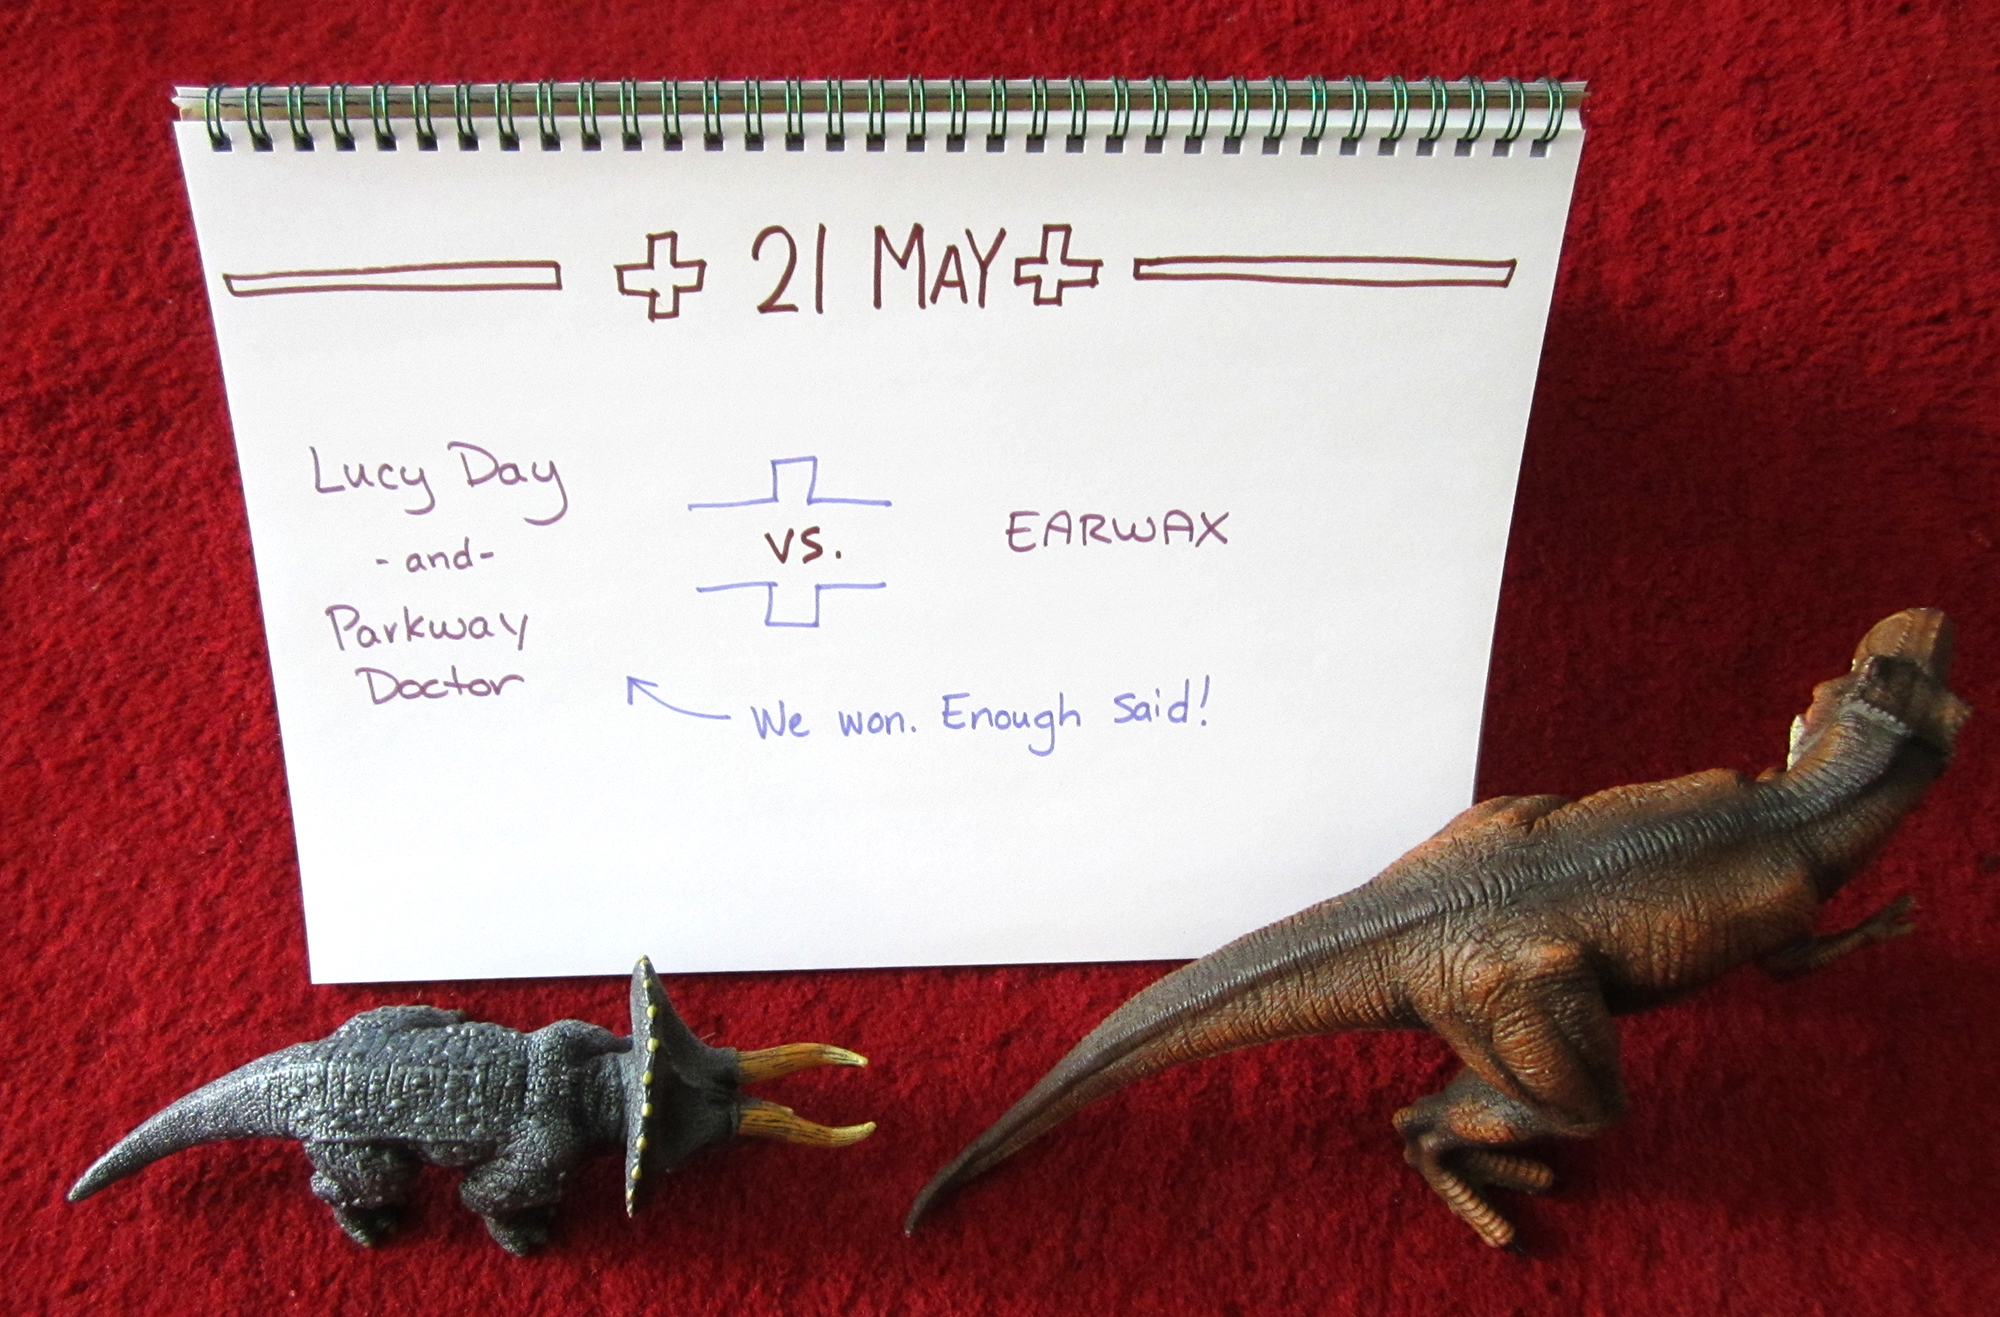 21 MAY
Lucy Day
-and-
Parkway
Doctor
vs.
EARWAX
We won. Enough said!